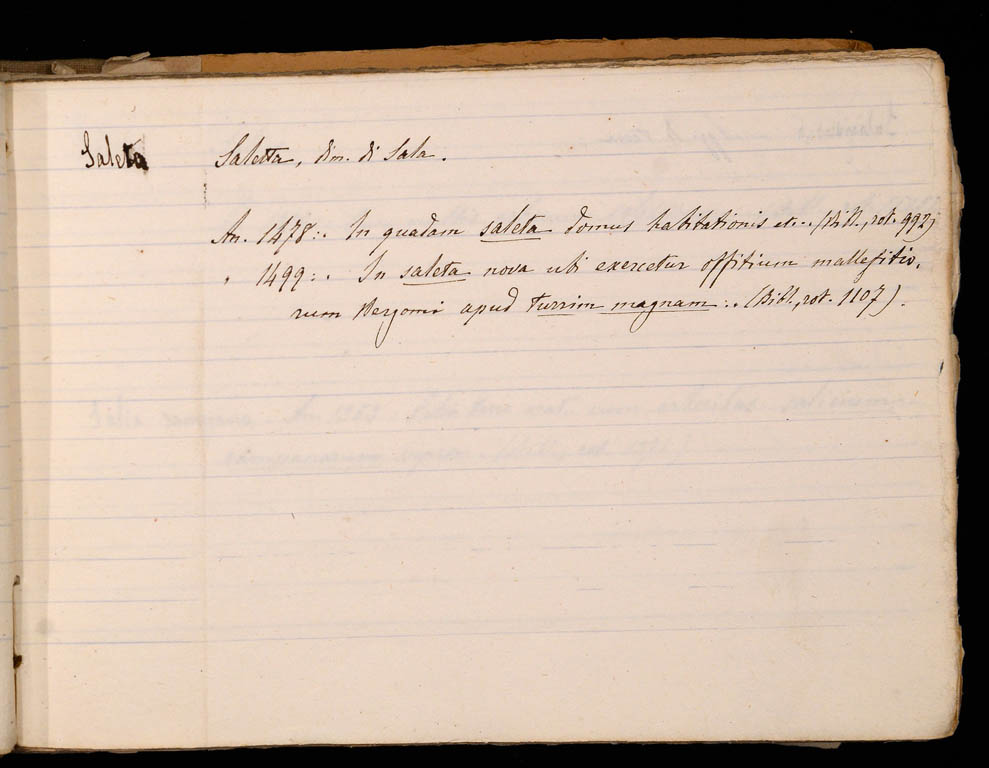 Saleta Saletta, dim. di Sala.
An. 1478:. In quadam saleta domus habitationis etc.. (Bibl., rot. 992)
" 1499:. In saleta nova ubi exercetur offitium mallefitio,
rum Bergomi apud turrim magnam:. (Bibl., rot. 1107).